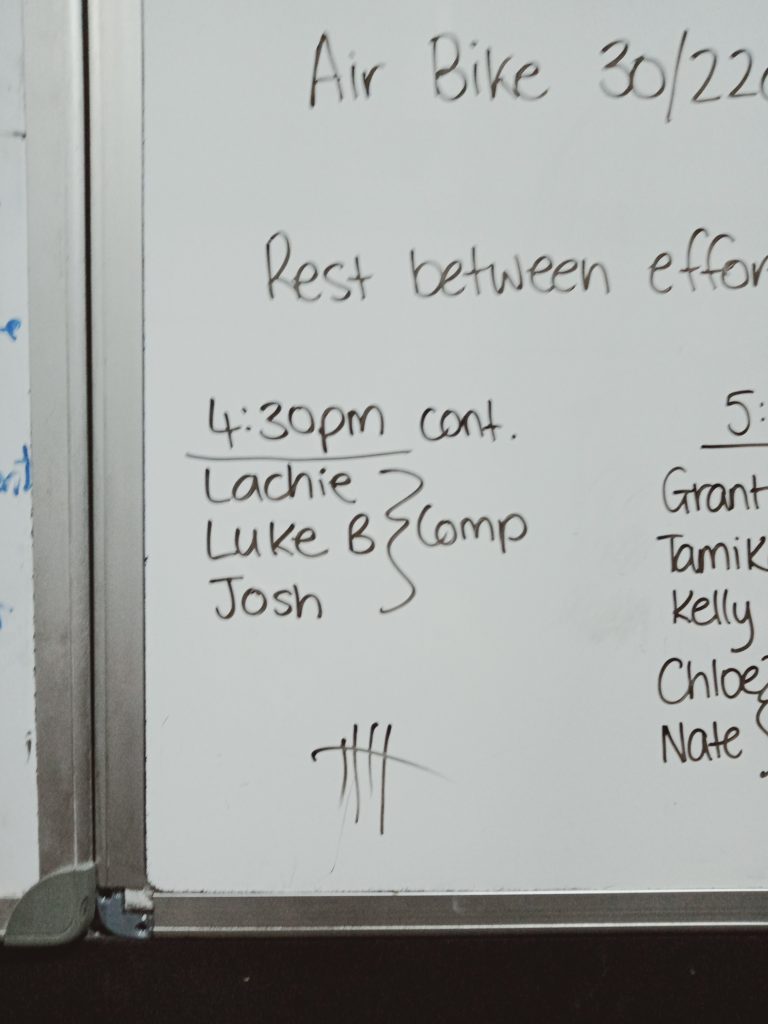 Air Bike 30/22c
Rest between effor
4:30pm cont.
Lachie
Luke B
Josh
Comp
5:
Grant
Tamik
Kelly
Chloe
Nate